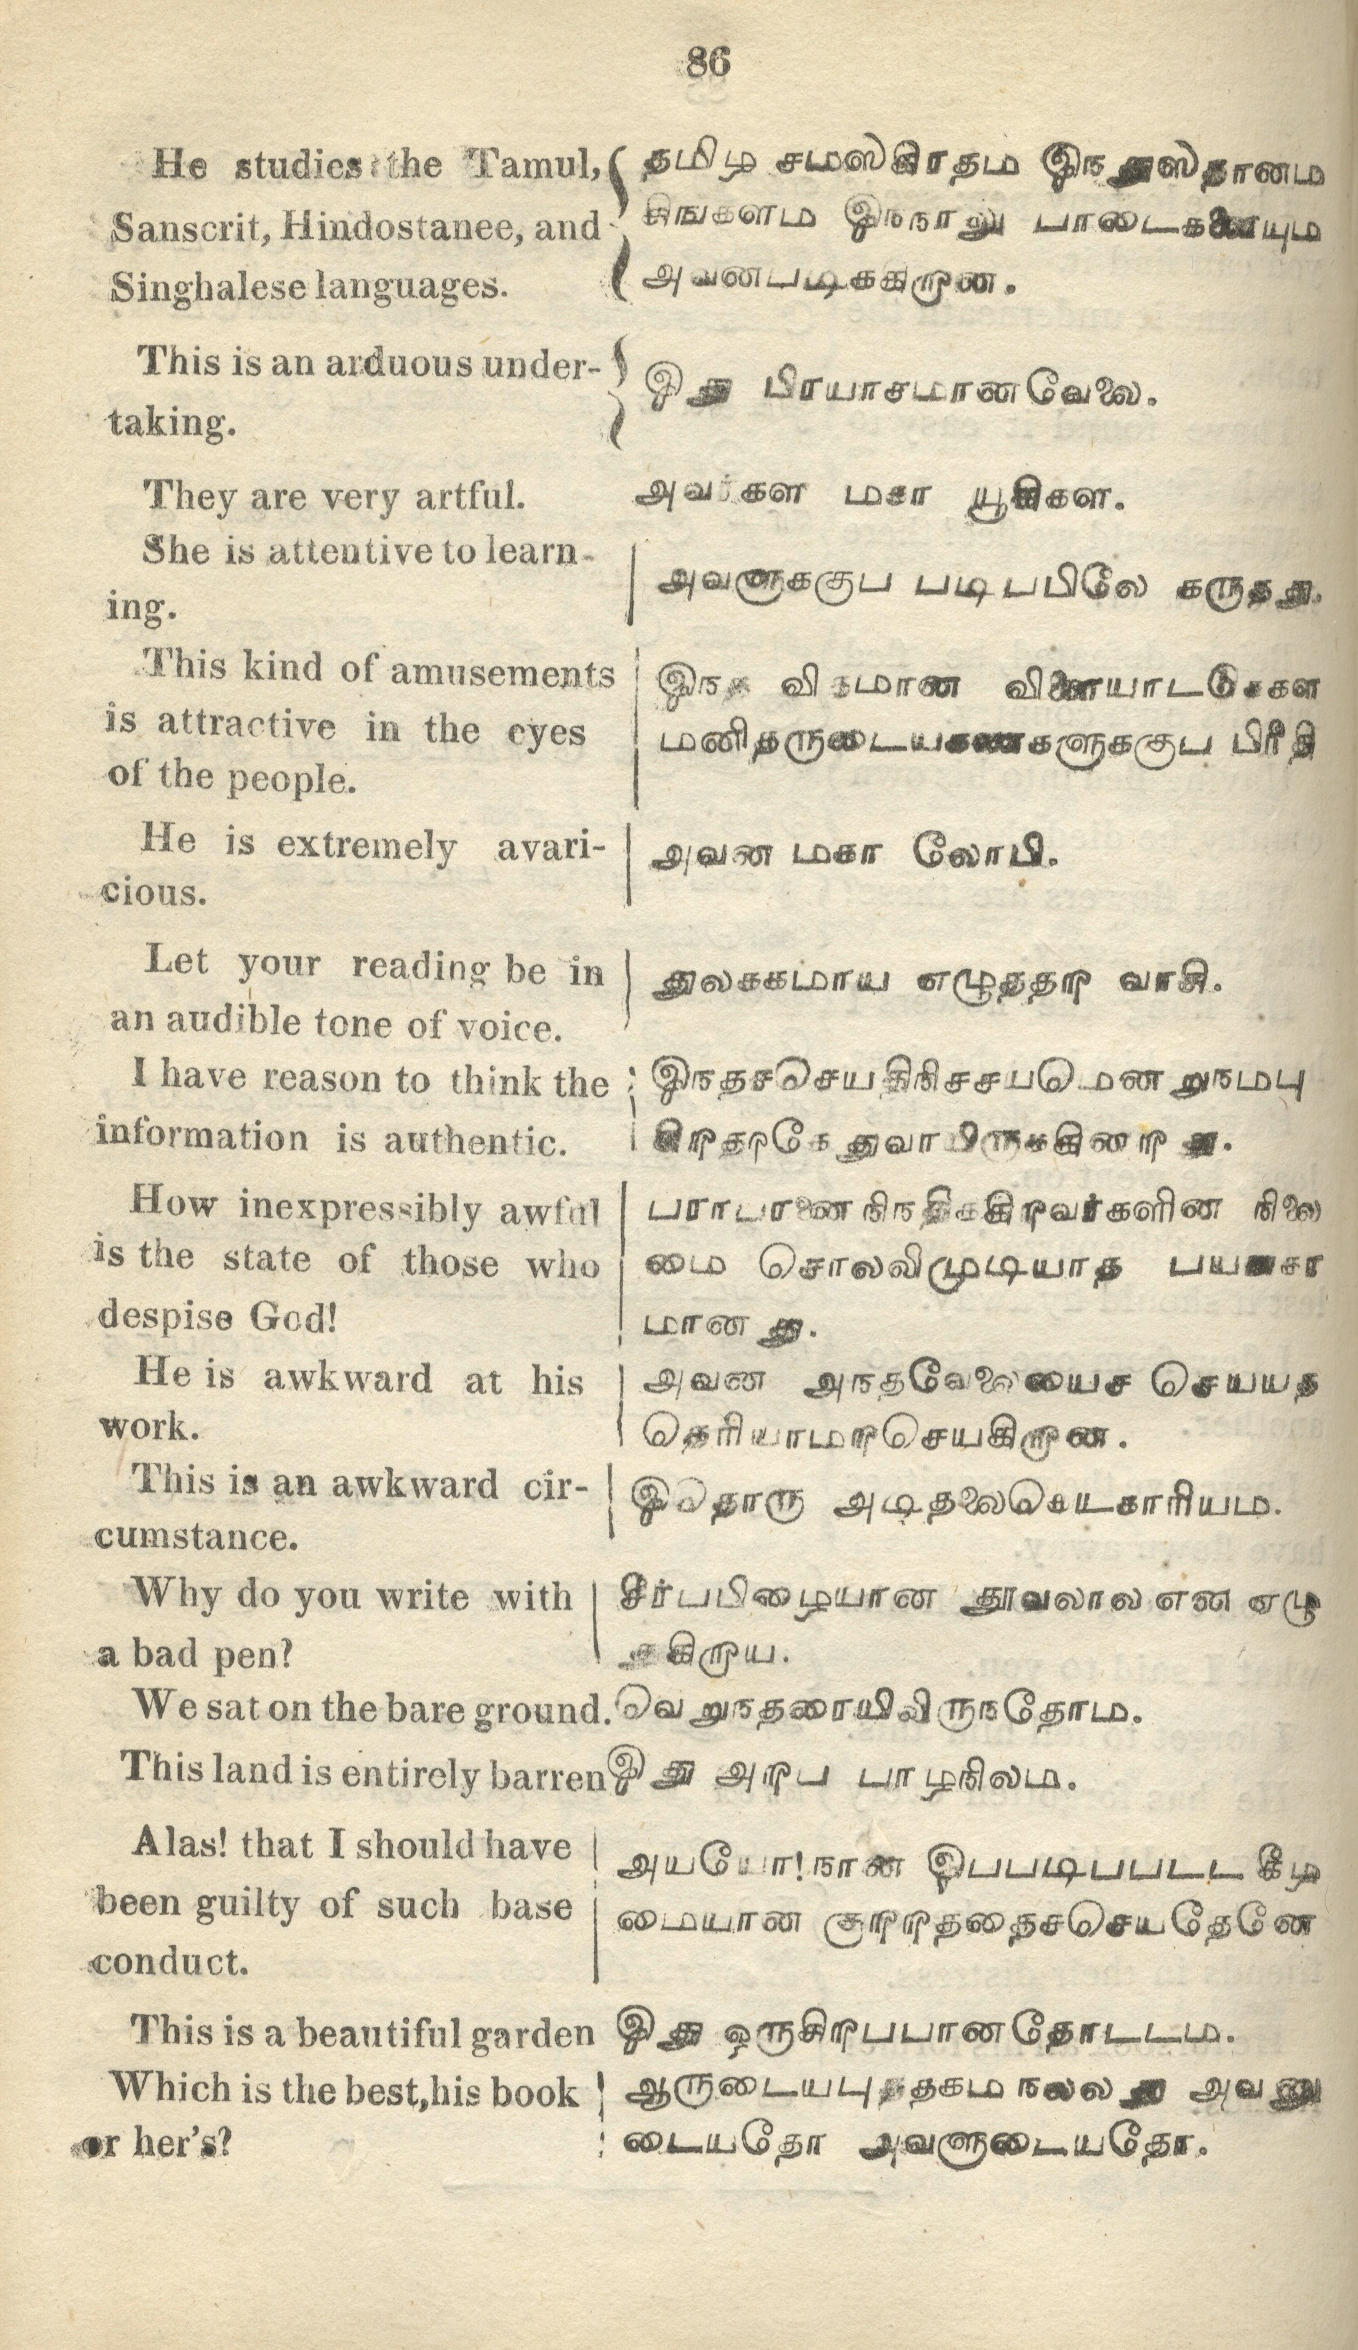 86
He studies the Tamul,
Sanscrit, Hindostanee, and
Singhalese languages.
தமிழ சமஸகிரதம இநதுஸதானம
சிஙகளம இநநாலு பாடைகளையும
அவனபடிககிறான.
This is an arduous under-
taking.
இது பிரயாசமானவேலை.
They are very artful.
அவர்கள மகா யூகிகள.
She is attentive to learn-
ing.
அவளுககுப படிபபிலே கருதது.
This kind of amusements
is attractive in the eyes
of the people.
இநத விதமான விளையாடடுககள
மனிதருடையகணகளுககுப பிரீதி
He is extremely avari-
cious.
அவன மகா லோபி.
Let your reading be in
an audible tone of voice.
துலககமாய எழுததா வாசி.
I have reason to think the
information is authentic.
இநதசசெயதிநிசசயமென றுநமபு
கிறதறகே துவாயிருககினற து.
How inexpressibly awful
is the state of those who
despise God!
பராபரனைநிநதிககிறவர்களின நிலை
மை சொலலிமுடியாத பயஙகர
மான து.
He is awkward at his
work.
அவன அநதவேலையைச செயயத
தெரியாமறசெயகிறான.
This is an awkward cir-
cumstance.
இதொரு அடிதலைகெடகாரியம.
Why do you write with
a bad pen?
சீர்பபிழையான தூவலால ஏன எழு
துகிறாய.
We sat on the bare ground.
வெறுநதரையிலிருநதோம.
This land is entirely barren
இது அறப பாழநிலம.
Alas! that I should have
been guilty of such base
conduct.
அயயோ! நான இபபடிபபடட கீழ
மையான குறறததைசசெயதேனே
This is a beautiful garden
இது ஒருசிறபபானதோடடம.
Which is the best, his book
or her's?
ஆருடையபுததகம நலல து அவனு
டையதோ அவளுடையதோ.